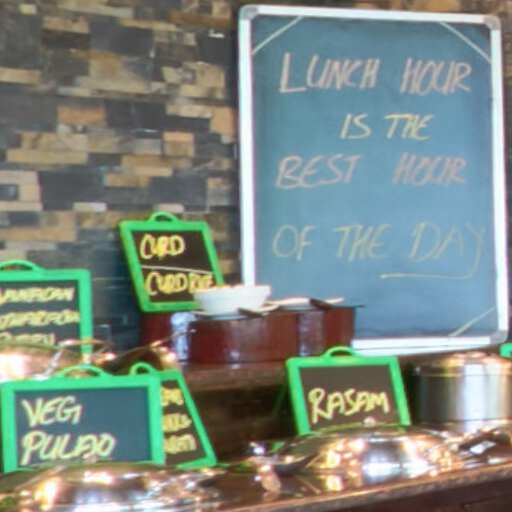 LUNCH HOUR
IS THE
BEST HOUR
OF THE DAY
CURD
CURD RICE
VEG
PULAO
RASAM